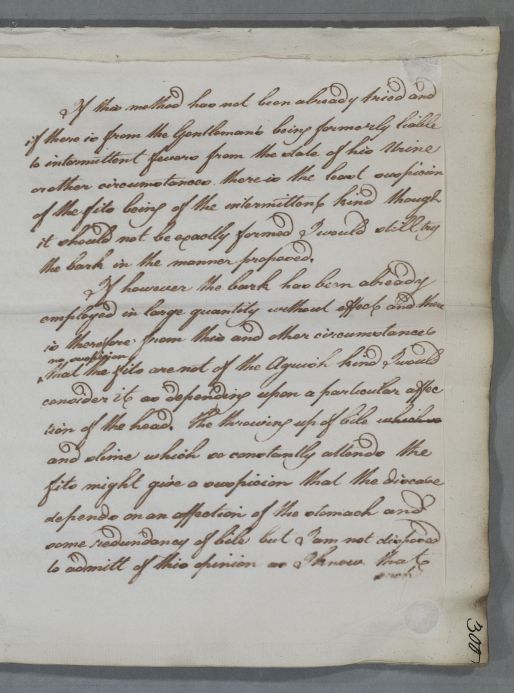 If this method has not been already tried and
if there is from the Gentleman's being formerly liable
to intermittent fevers from the state of his Urine
or other circumstances there is the least suspicion
of the fits being of the intermittent kind though
it should not be exactly formed I would still try
the bark in the manner proposed.
If however the bark has been already
employed in large quantity without effect and there
is therefore from this and other circumstances
no suspicion
that the fits are not of the Aguish kind I would
consider it as depending upon a particular affec
tion of the head. The throwing up of bile which
and slime which so constantly attends the
fits might give a suspicion that the disease
depends on an affection of the stomach and
some redundancy of bile but I am not disposed
to admitt of this opinion as I know that
300